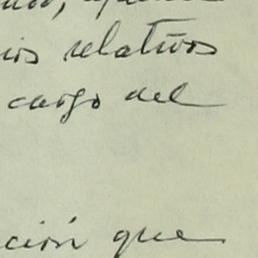 ios relativos
cargo del
ción que